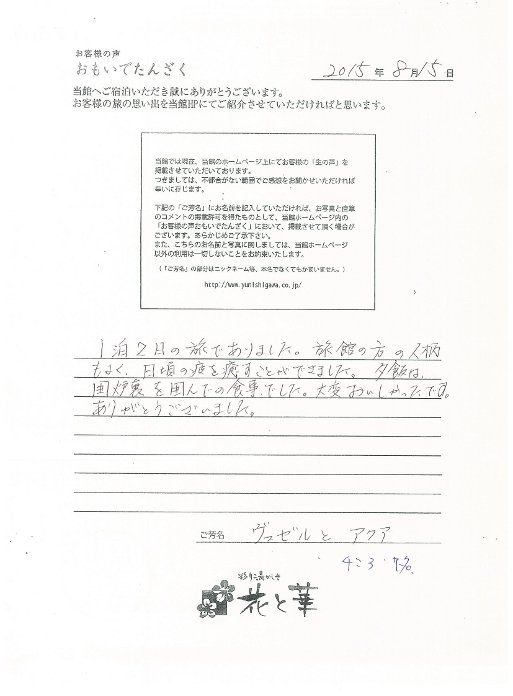 お客様の声
おもいでたんざく
2015年8月15日
当館へご宿泊いただき誠にありがとうございます。
お客様の旅の思い出を当館HPにてご紹介させていただければと思います。
当館では現在、当館のホームページ上にてお客様の「生の声」を
掲載させていただいております。
つきましては、不都合がない範囲でご感想をお聞かせいただければ
幸いに存じます。
下記の「ご芳名」にお名前を記入していただければ、お写真と自筆
のコメントの掲載許可を得たものとして、当館ホームページ内の
「お客様の声おもいでたんざく」において、掲載させて頂く場合が
ございます。あらかじめご了承下さい。
また、こちらのお名前と写真に関しましては、当館ホームページ
以外の利用は一切しないことをお約束いたします。
(「ご芳名」の部分はニックネーム等、本名でなくてもかまいません。)
http://www.yunishigawa.co.jp/
1泊2日の旅でありました。旅館の方の人柄
もよく、日頃の疲を癒すことができました。夕飯は、
囲炉裏を囲んでの食事でした。大変おいしかったです。
ありがとうございました。
ご芳名 ヴェゼルと アクア
花と華